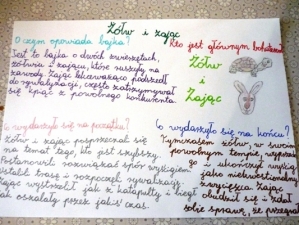 Żółw i zając
O czym opowiada bajka?
Jest to bajka o dwóch zwierzętach,
żółwiu i zającu, które ruszyły na
zawody. Zając lekceważąco podszedł
do rywalizacji, często zatrzymywał
się kpiąc z powolnego konkurenta.
Kto jest głównym bohaterem?
Żółw
i
Zając
Co wydarzyło się na początku?
Żółw i zając posprzeczał się
na temat tego, kto jest szybszy.
Postanowili rozwiązać spór wyścigiem.
Ustalili trasę i rozpoczęli rywalizację.
Zając wystrzelił jak z katapulty i biegł
jak oszalały przez jakiś czas.
Co wydarzyło się na końcu?
Tymczasem żółw, w swoim
powolnym tempie, wyprzedził
go i ukończył wyścig
jako niekwestionowany
zwycięzca. Zając
obudził się i zdał
sobie sprawę, że przegrał